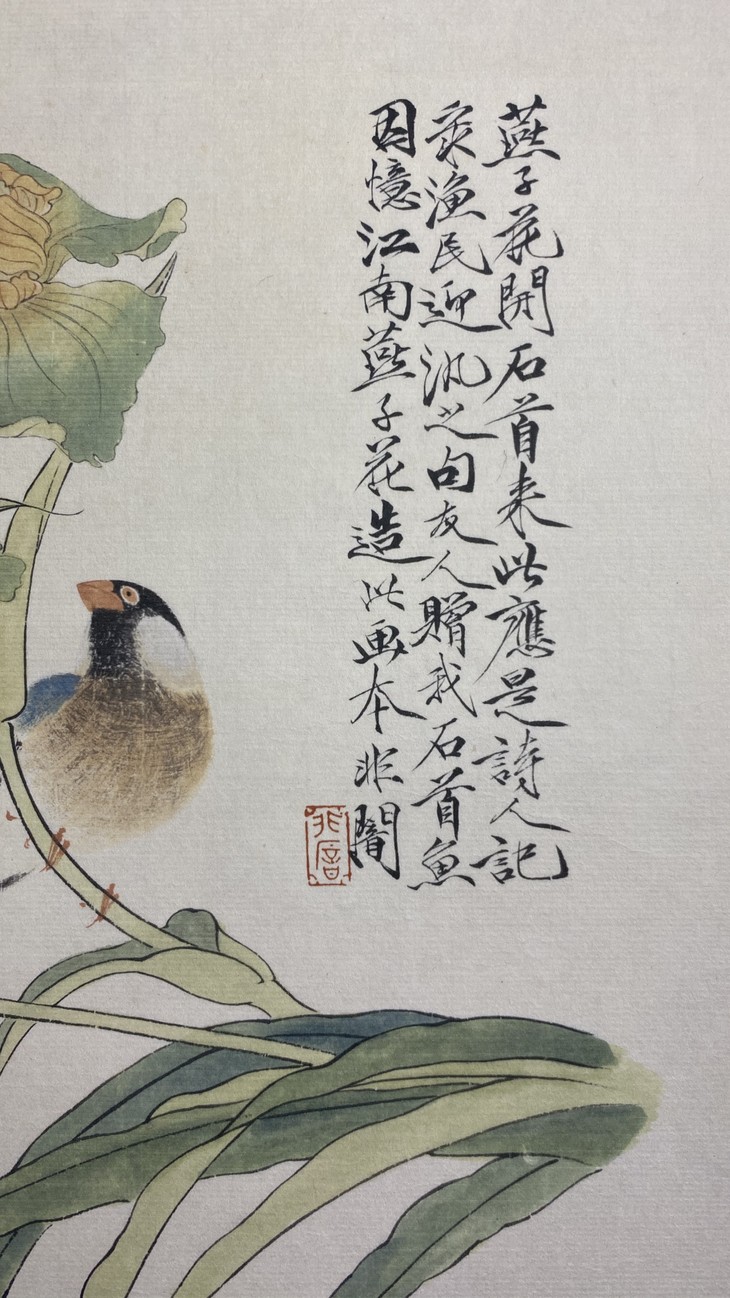 燕子花開石首来此應是詩人記
录渔民迎汛之句友人贈我石首魚
因憶江南燕子花造此画本非闇
非闇